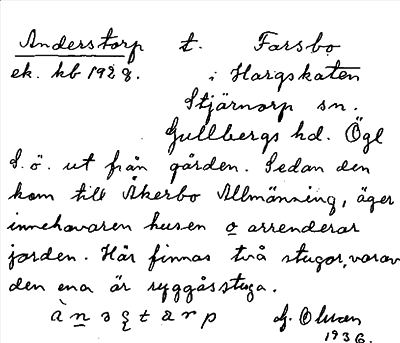 Anderstorp t. Farsbo
ek. kb 1928. i Hargskaten
Stjärnorp sn.
Gullbergs hd. Ögl
S.ö. ut från gården. Sedan den
kom till Åkerbo Allmänning, äger
innehavaren husen o arrenderar
jorden. Här finnas två stugor, varav
den ena är ryggåsstuga.
1936.